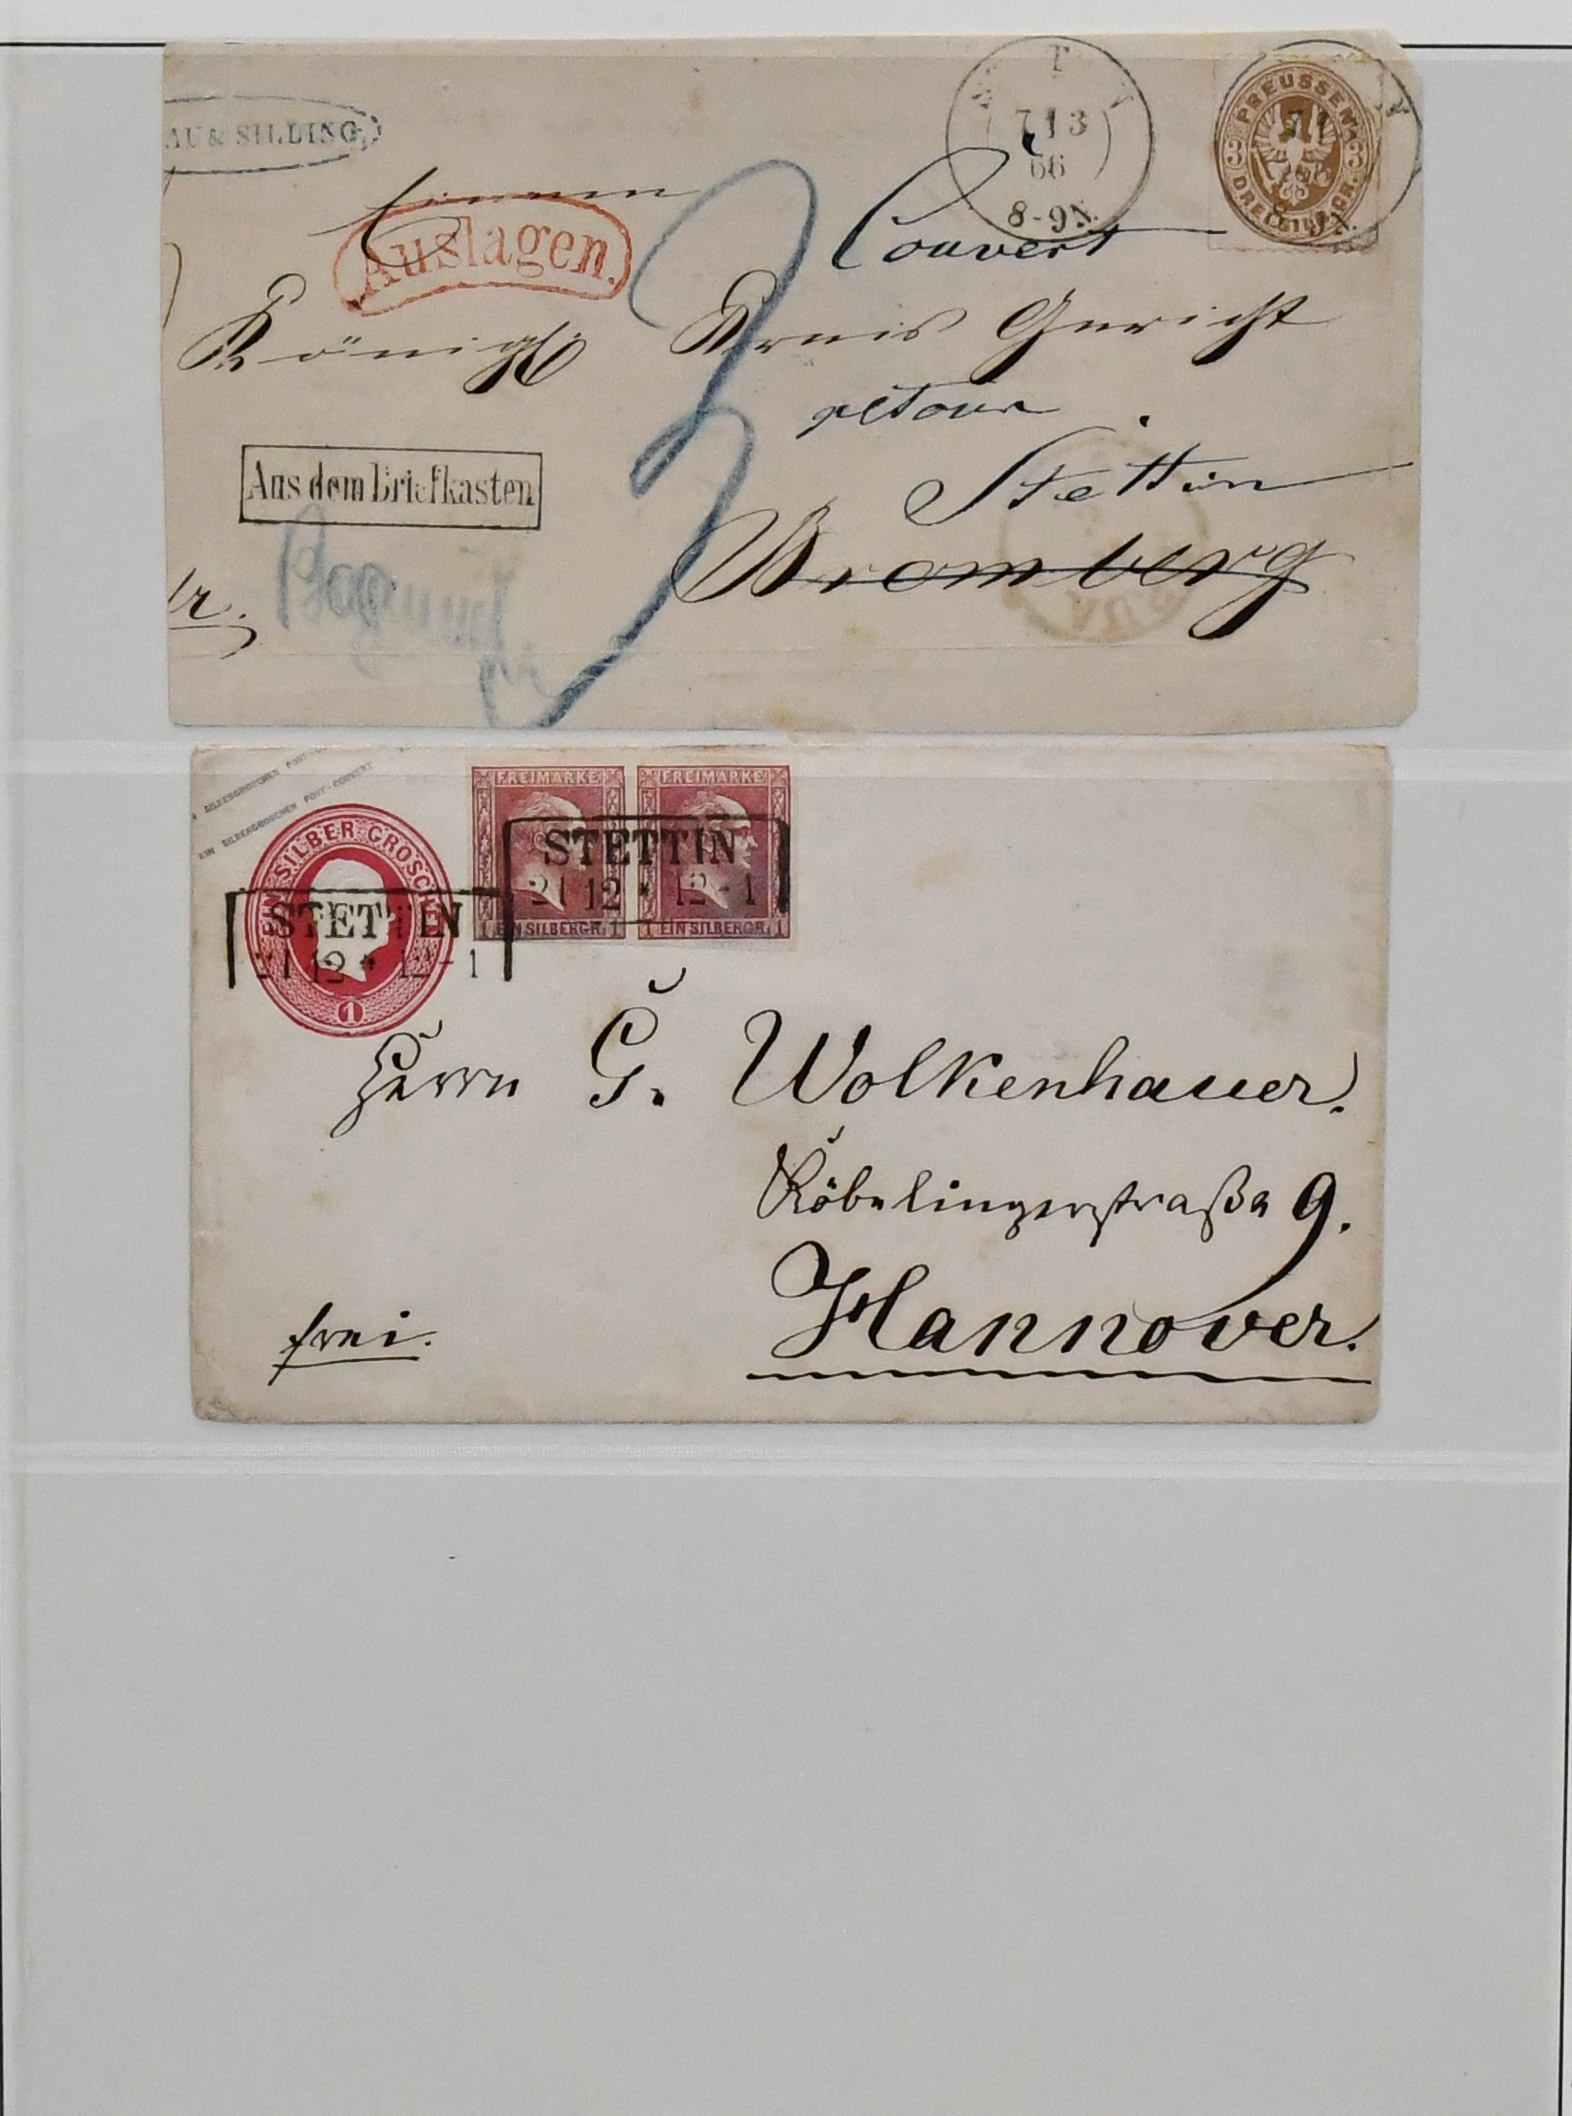 AU & SILLING
T
7 13
66
8-9N.
PREUSSEN
3 3
DREI SILB. GR.
einem Couvert
Auslagen.
Königl. Kreis Gericht
retour
Stettin
Aus dem Briefkasten
Bromberg
EIN SILBERGROSCHEN POST-COUVERT
EIN SILBER GROSCHEN
1
FREIMARKE
1 EIN SILBERGR. 1
FREIMARKE
1 EIN SILBERGR. 1
STETTIN
21 12 * 12-1
STETTIN
21 12 * 12-1
Herrn G. Wolkenhauer.
Köbelingerstraße 9.
Hannover.
frei.